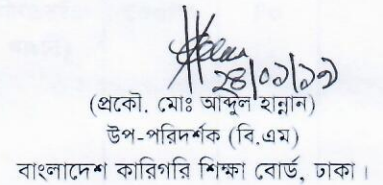 ২৪/০১/১৭
(প্রকৌ. মোঃ আব্দুল হান্নান)
উপ-পরিদর্শক (বি.এম)
বাংলাদেশ কারিগরি শিক্ষা বোর্ড, ঢাকা।